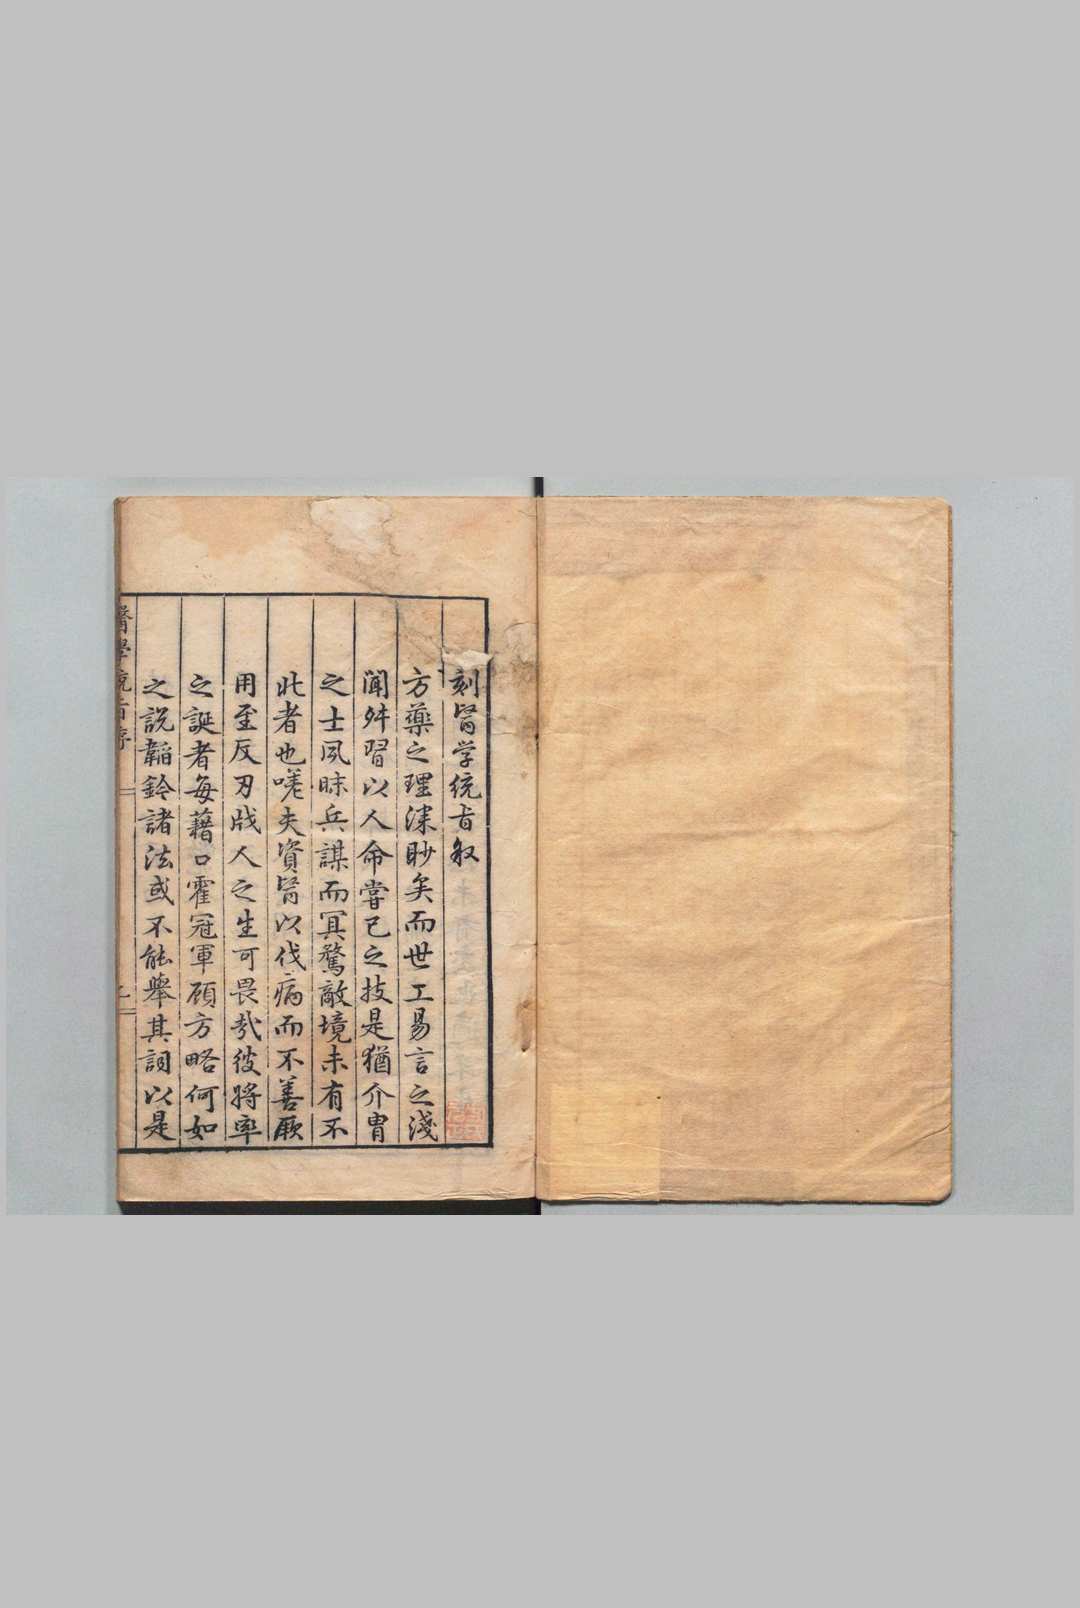 刻医学统旨叙
方藥之理深眇矣而世工易言之淺
聞舛習以人命嘗已之技是猶介胄
之士夙昧兵謀而冥鶩敵境未有不
此者也嗟夫資醫以伐病而不善厥
用至反刃戕人之生可畏哉彼將率
之誕者每藉口霍冠軍顾方略何如
之説韜鈐諸法或不能舉其詞以是
醫學統旨序